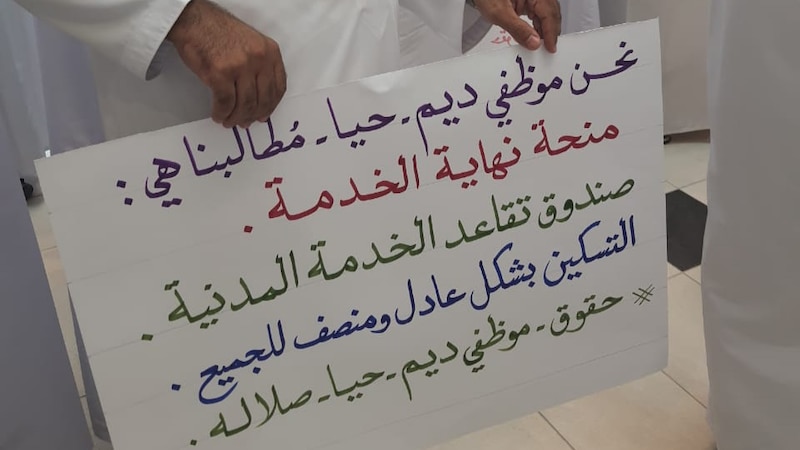 نحن موظفي ديم - حيا - مُطالبنا هي :
منحة نهاية الخدمة .
صندوق تقاعد الخدمة المدنية .
التسكين بشكل عادل ومنصف للجميع .
# حقوق - موظفي ديم - حيا - صلاله .